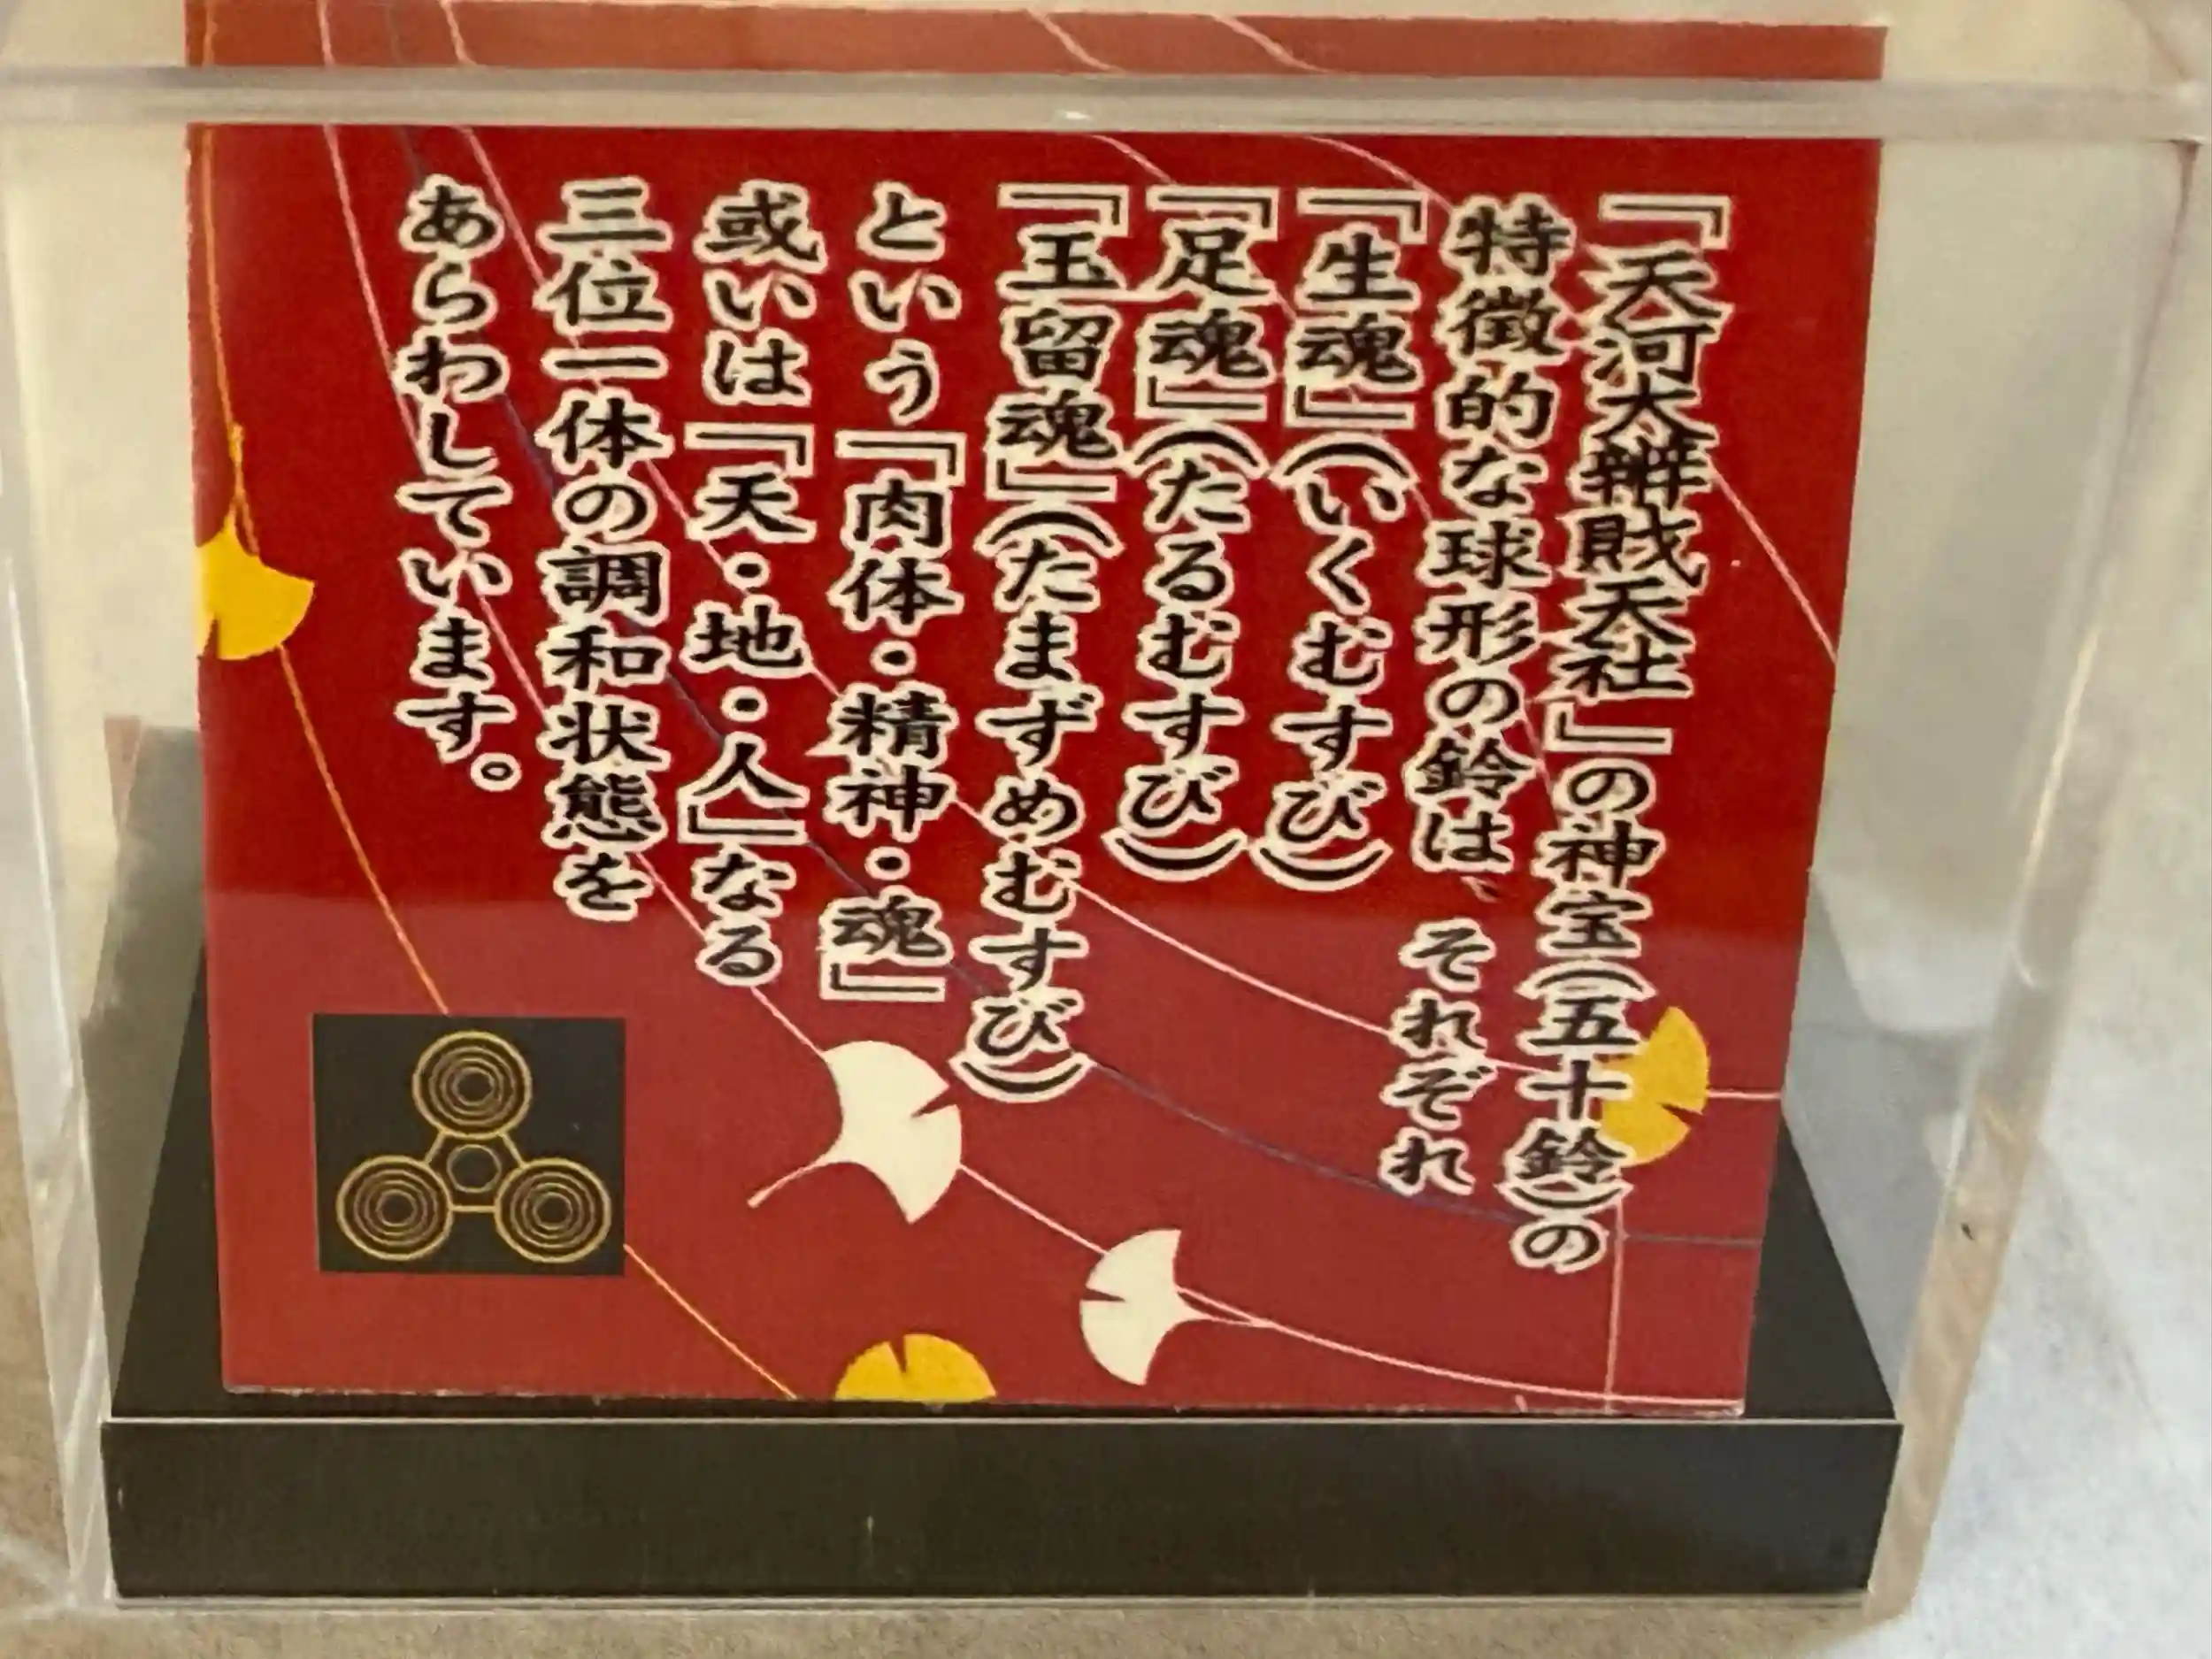 『天河大辨財天社』の神宝(五十鈴)の
特徴的な球形の鈴は、それぞれ
『生魂』(いくむすび)
『足魂』(たるむすび)
『玉留魂』(たまずめむすび)
という『肉体・精神・魂』
或いは『天・地・人』なる
三位一体の調和状態を
あらわしています。